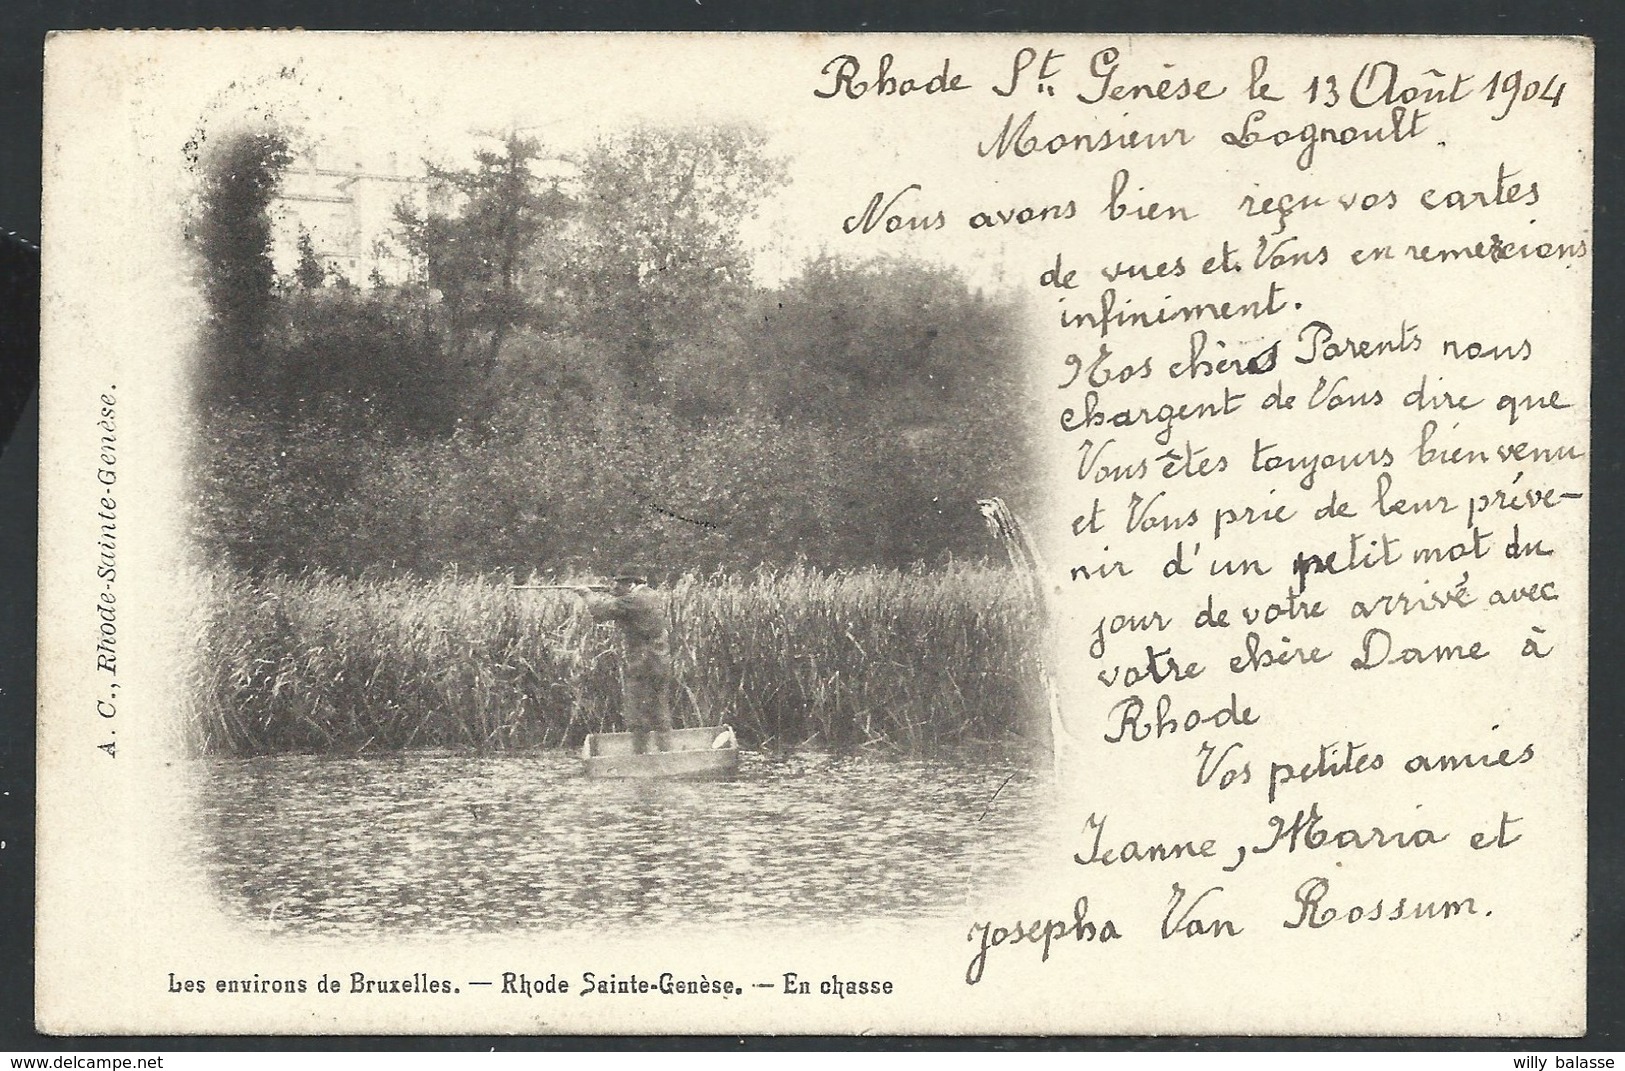 Rhode Ste Genèse le 13 Août 1904
Monsieur Lognoult.
Nous avons bien reçu vos cartes
de vues et Vous en remercions
infiniment.
Nos chères Parents nous
chargent de Vous dire que
Vous êtes toujours bienvenu
et Vous prie de leur préve-
nir d'un petit mot du
jour de votre arrivé avec
votre chère Dame à
Rhode
Vos petites amies
Jeanne, Maria et
Josepha Van Rossum.
A. C., Rhode-Sainte-Genèse.
Les environs de Bruxelles. — Rhode Sainte-Genèse. — En chasse
willy balasse